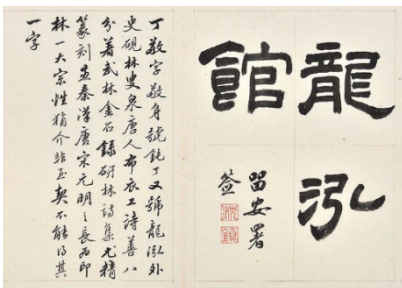 龍泓
館
留安署
簽
丁敬字敬身號鈍丁又號龍泓外
史硯林叟泉唐人布衣工詩善八
分著武林金石錄硯林詩集尤精
篆刻秦漢唐宋元明之長為印
林一大宗性狷介非至契不能得其
一字